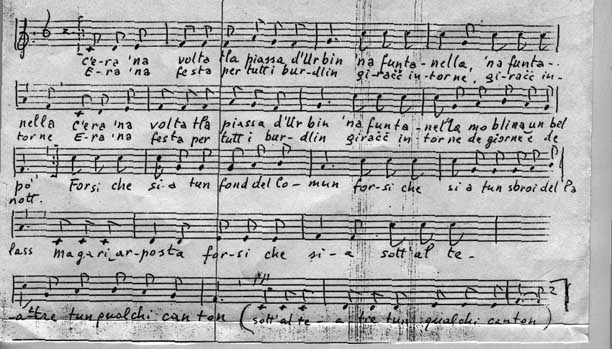 c'e-ra 'na volta tla piassa d'Urbin 'na funta-nella, 'na funta-
E-ra 'na festa per tutti i bur-dlin gi-racč in-torne, giracč in-
nella c'era 'na volta tla piassa d'Urbin 'na funta-nella mo blina un bel
torne E-ra 'na festa per tutt i bur-dlin giracč in torne de giorne e de
po' Forsi che si-a tun fond del Co-mun for-si che si a tun sbroi del Pa
nott.
lass magari ar-posta for-si che si-a sott'al te-
atre tun qualchi canton (sott'al te a tre tun qualchi canton)